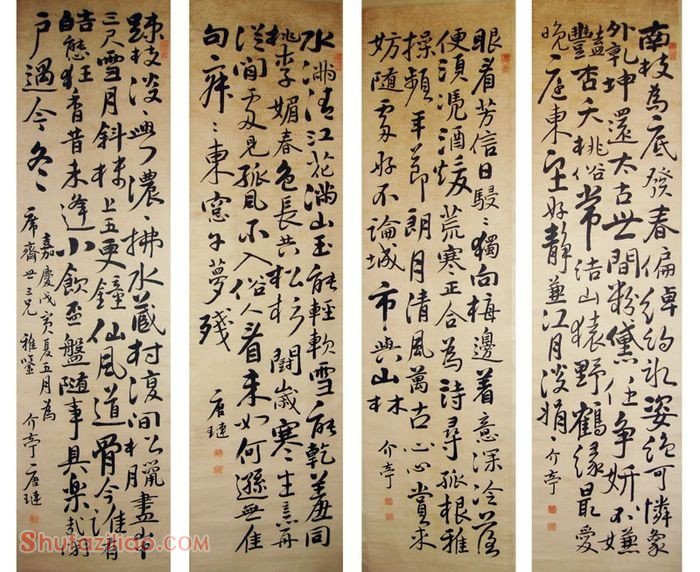 南枝為底發春偏綽約冰姿絕可憐象
外乾坤還太古世間粉黛任爭妍不嫌
杏夭桃俗常結山猿野鶴緣最愛
晚庭東好靜兼江月淡娟々介亭
眼看芳信日駸々獨向梅邊着意深冷蕊
便須凭酒煖荒寒正合為詩尋孤根雅
操頻年節朗月清風萬古心賞來
妨隨處好不論城市與山林 介亭
水滿清江花滿山玉能輕軟雪能乾羞同
桃李媚春色長共松杉鬪歲寒生意冉
從閒處見孤風不入俗人看未如何遜無佳
句寂々東窓午夢殘 唐璉
踈枝淡々興濃々拂水藏村復間臘盡
三尺雪月斜樓上五更鐘仙風道骨今惟有
皓態狂香昔未逢小飲盃盤隨事具樂哉
户過今冬
嘉慶戊寅夏五月為
席齋世三兄 雅鑒 介亭唐璉
Shufaziliao.com